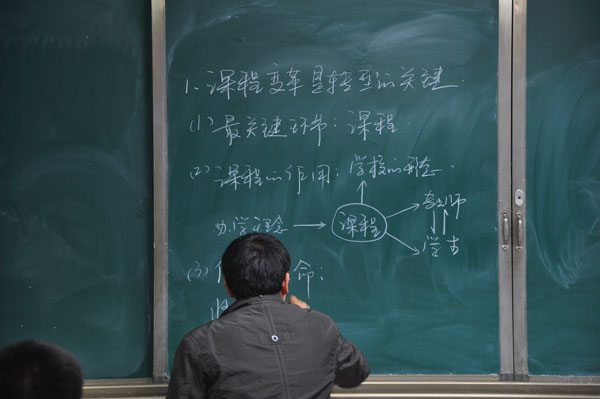 1、课程变革是转型的关键.
(1) 最关键环节：课程
(2) 课程的作用：学校的形态.
教师
办学理念 → 课程
学生
(3) 命：